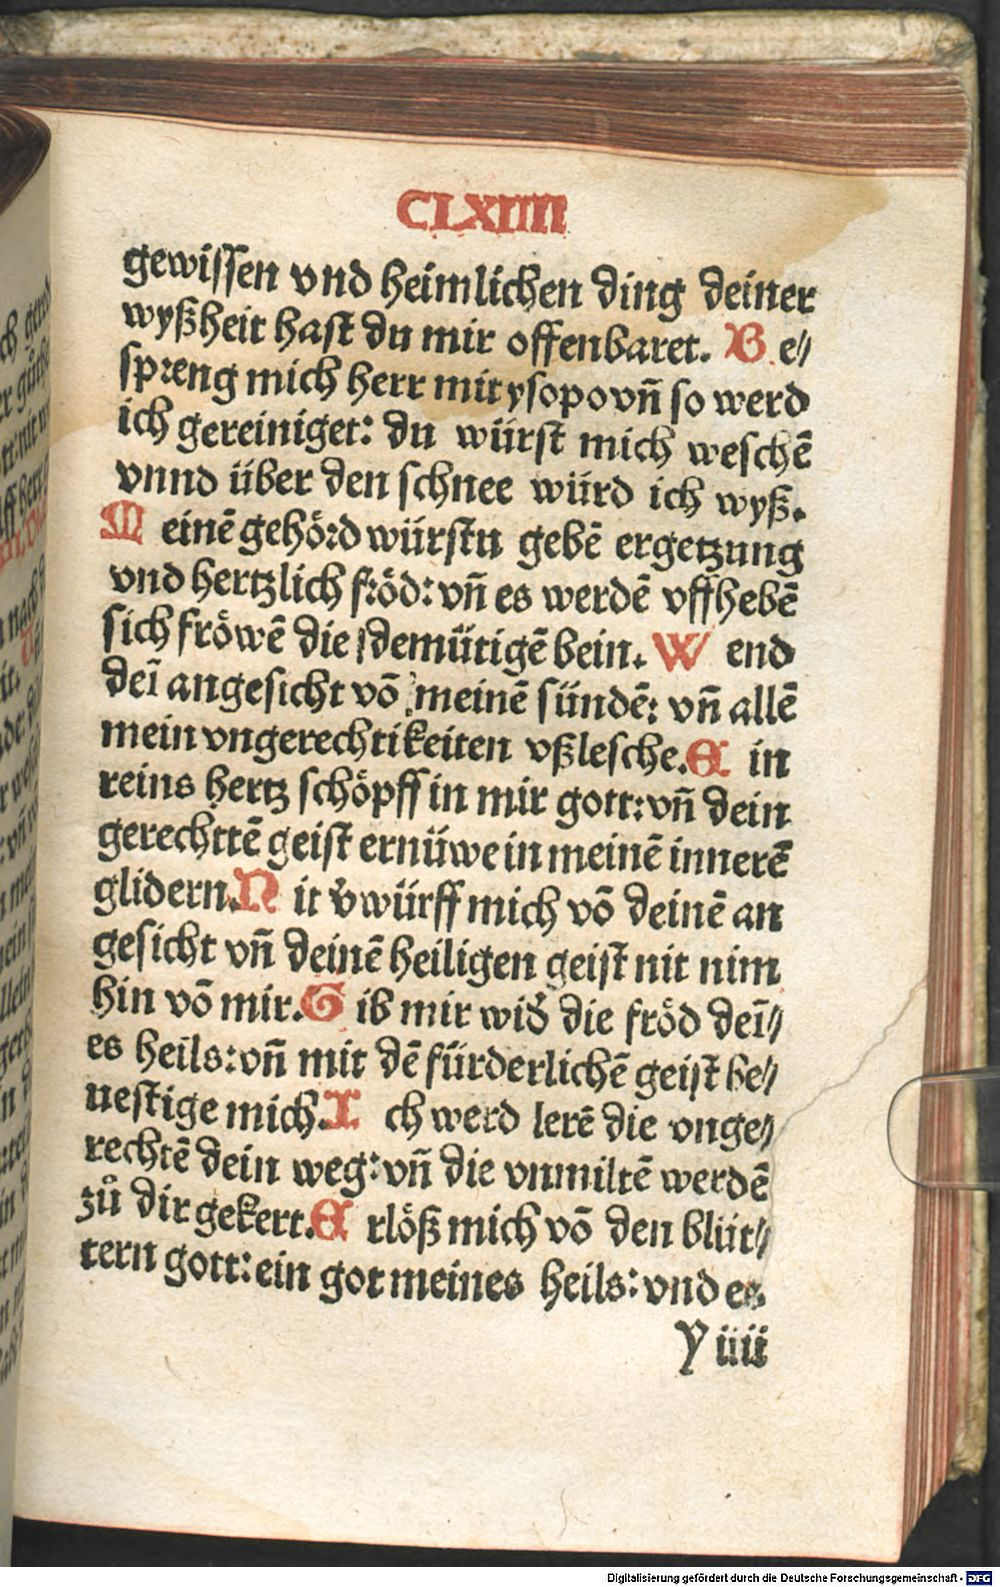 CLXIIII
gewissen vnd heimlichen ding deiner
wyßheit hast du mir offenbaret. Be⸗
spreng mich herr mit ysopo vñ so werd
ich gereiniget: du würst mich weschē
vnnd über den schnee würd ich wyß.
Meinē gehörd würstu gebē ergetzung
vnd hertzlich fröd: vñ es werdē vffhebē
sich fröwē die demütigē bein. Wend
deī angesicht vō meinē sündē: vñ allē
mein vngerechtikeiten vßlesche. Ein
reins hertz schöpff in mir gott: vñ dein
gerechttē geist ernüwe in meinē innerē
glidern. Nit v̄würff mich vō deinē an
gesicht vñ deinē heiligen geist nit nim
hin vō mir. Gib mir wid̄ die fröd deī⸗
es heils: vñ mit dē fürderlichē geist be⸗
uestige mich. Ich werd lerē die vnge⸗
rechtē dein weg: vñ die vnmiltē werdē
zů dir gekert. Erlöß mich vō den blüt⸗
tern gott: ein got meines heils: vnd es
Y iiii
Digitalisierung gefördert durch die Deutsche Forschungsgemeinschaft - DFG